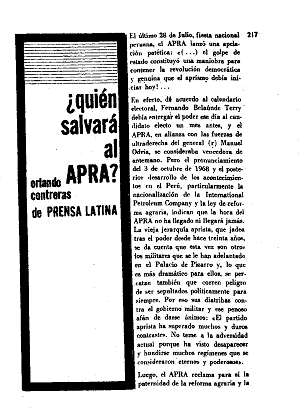 ¿quién
salvará
al
APRA?
orlando
contreras
de PRENSA LATINA
217
El último 28 de Julio, fiesta nacional
peruana, el APRA lanzó una apela-
ción patética: «(...) el golpe de
estado constituyó una maniobra para
contener la revolución democrática
y genuina que el aprismo debía ini-
ciar hoy! ...
En efecto, de acuerdo al calendario
electoral, Fernando Belaúnde Terry
debía entregar el poder ese día al can-
didato electo un mes antes, y el
APRA, en alianza con las fuerzas de
ultraderecha del general (r) Manuel
Odría, se consideraba vencedora de
antemano. Pero el pronunciamiento
del 3 de octubre de 1968 y el poste-
rior desarrollo de los acontecimien-
tos en el Perú, particularmente la
nacionalización de la International
Petroleum Company y la ley de refor-
ma agraria, indican que la hora del
APRA no ha llegado ni llegará jamás.
La vieja jerarquía aprista, que jadea
tras el poder desde hace treinta años,
se da cuenta que esta vez son otros
los militares que se le han adelantado
en el Palacio de Pizarro y, lo que
es más dramático para ellos, se per-
catan también que corren peligro
de ser sepultados políticamente para
siempre. Por eso sus diatribas con-
tra el gobierno militar y ese penoso
afán de darse ánimos: «El partido
aprista ha superado muchos y duros
contrastes. No teme a la adversidad
actual porque ha visto desaparecer
y hundirse muchos regímenes que se
consideraron eternos y poderosos».
Luego, el APRA reclama para sí la
paternidad de la reforma agraria y la